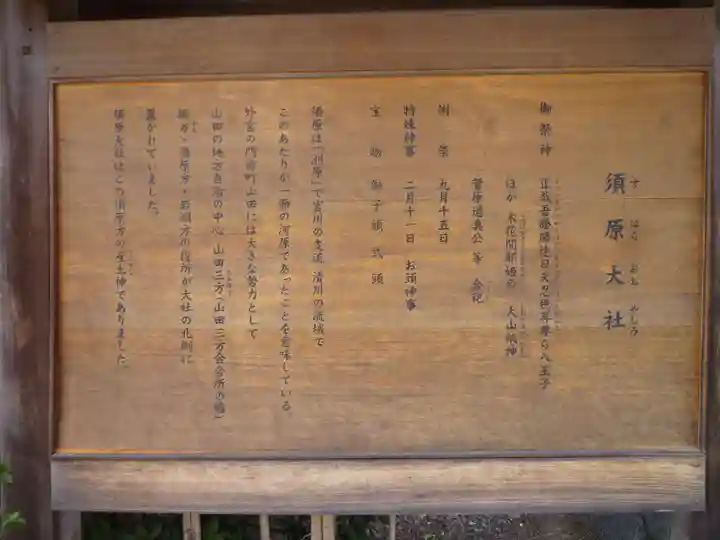 須原大社
すはらおおやしろ
御祭神 正哉吾勝勝速日天忍穂耳尊ら八王子
ほか 木花開耶姫命 大山祇神
菅原道真公 等 合祀
例祭 九月十五日
特殊神事 二月十一日 お頭神事
宝物 御子頭 弐頭
須原は「洲原」で宮川の支流 清川の流域で
このあたりが一面の河原であったことを意味している。
外宮の門前町山田には大きな勢力として
山田の地方自治の中心 山田三方(山田三方会合所の略)
須原方・岩渕方の役所が大社の北側に
置かれていました。
須原大社はこの須原方の産土神でありました。